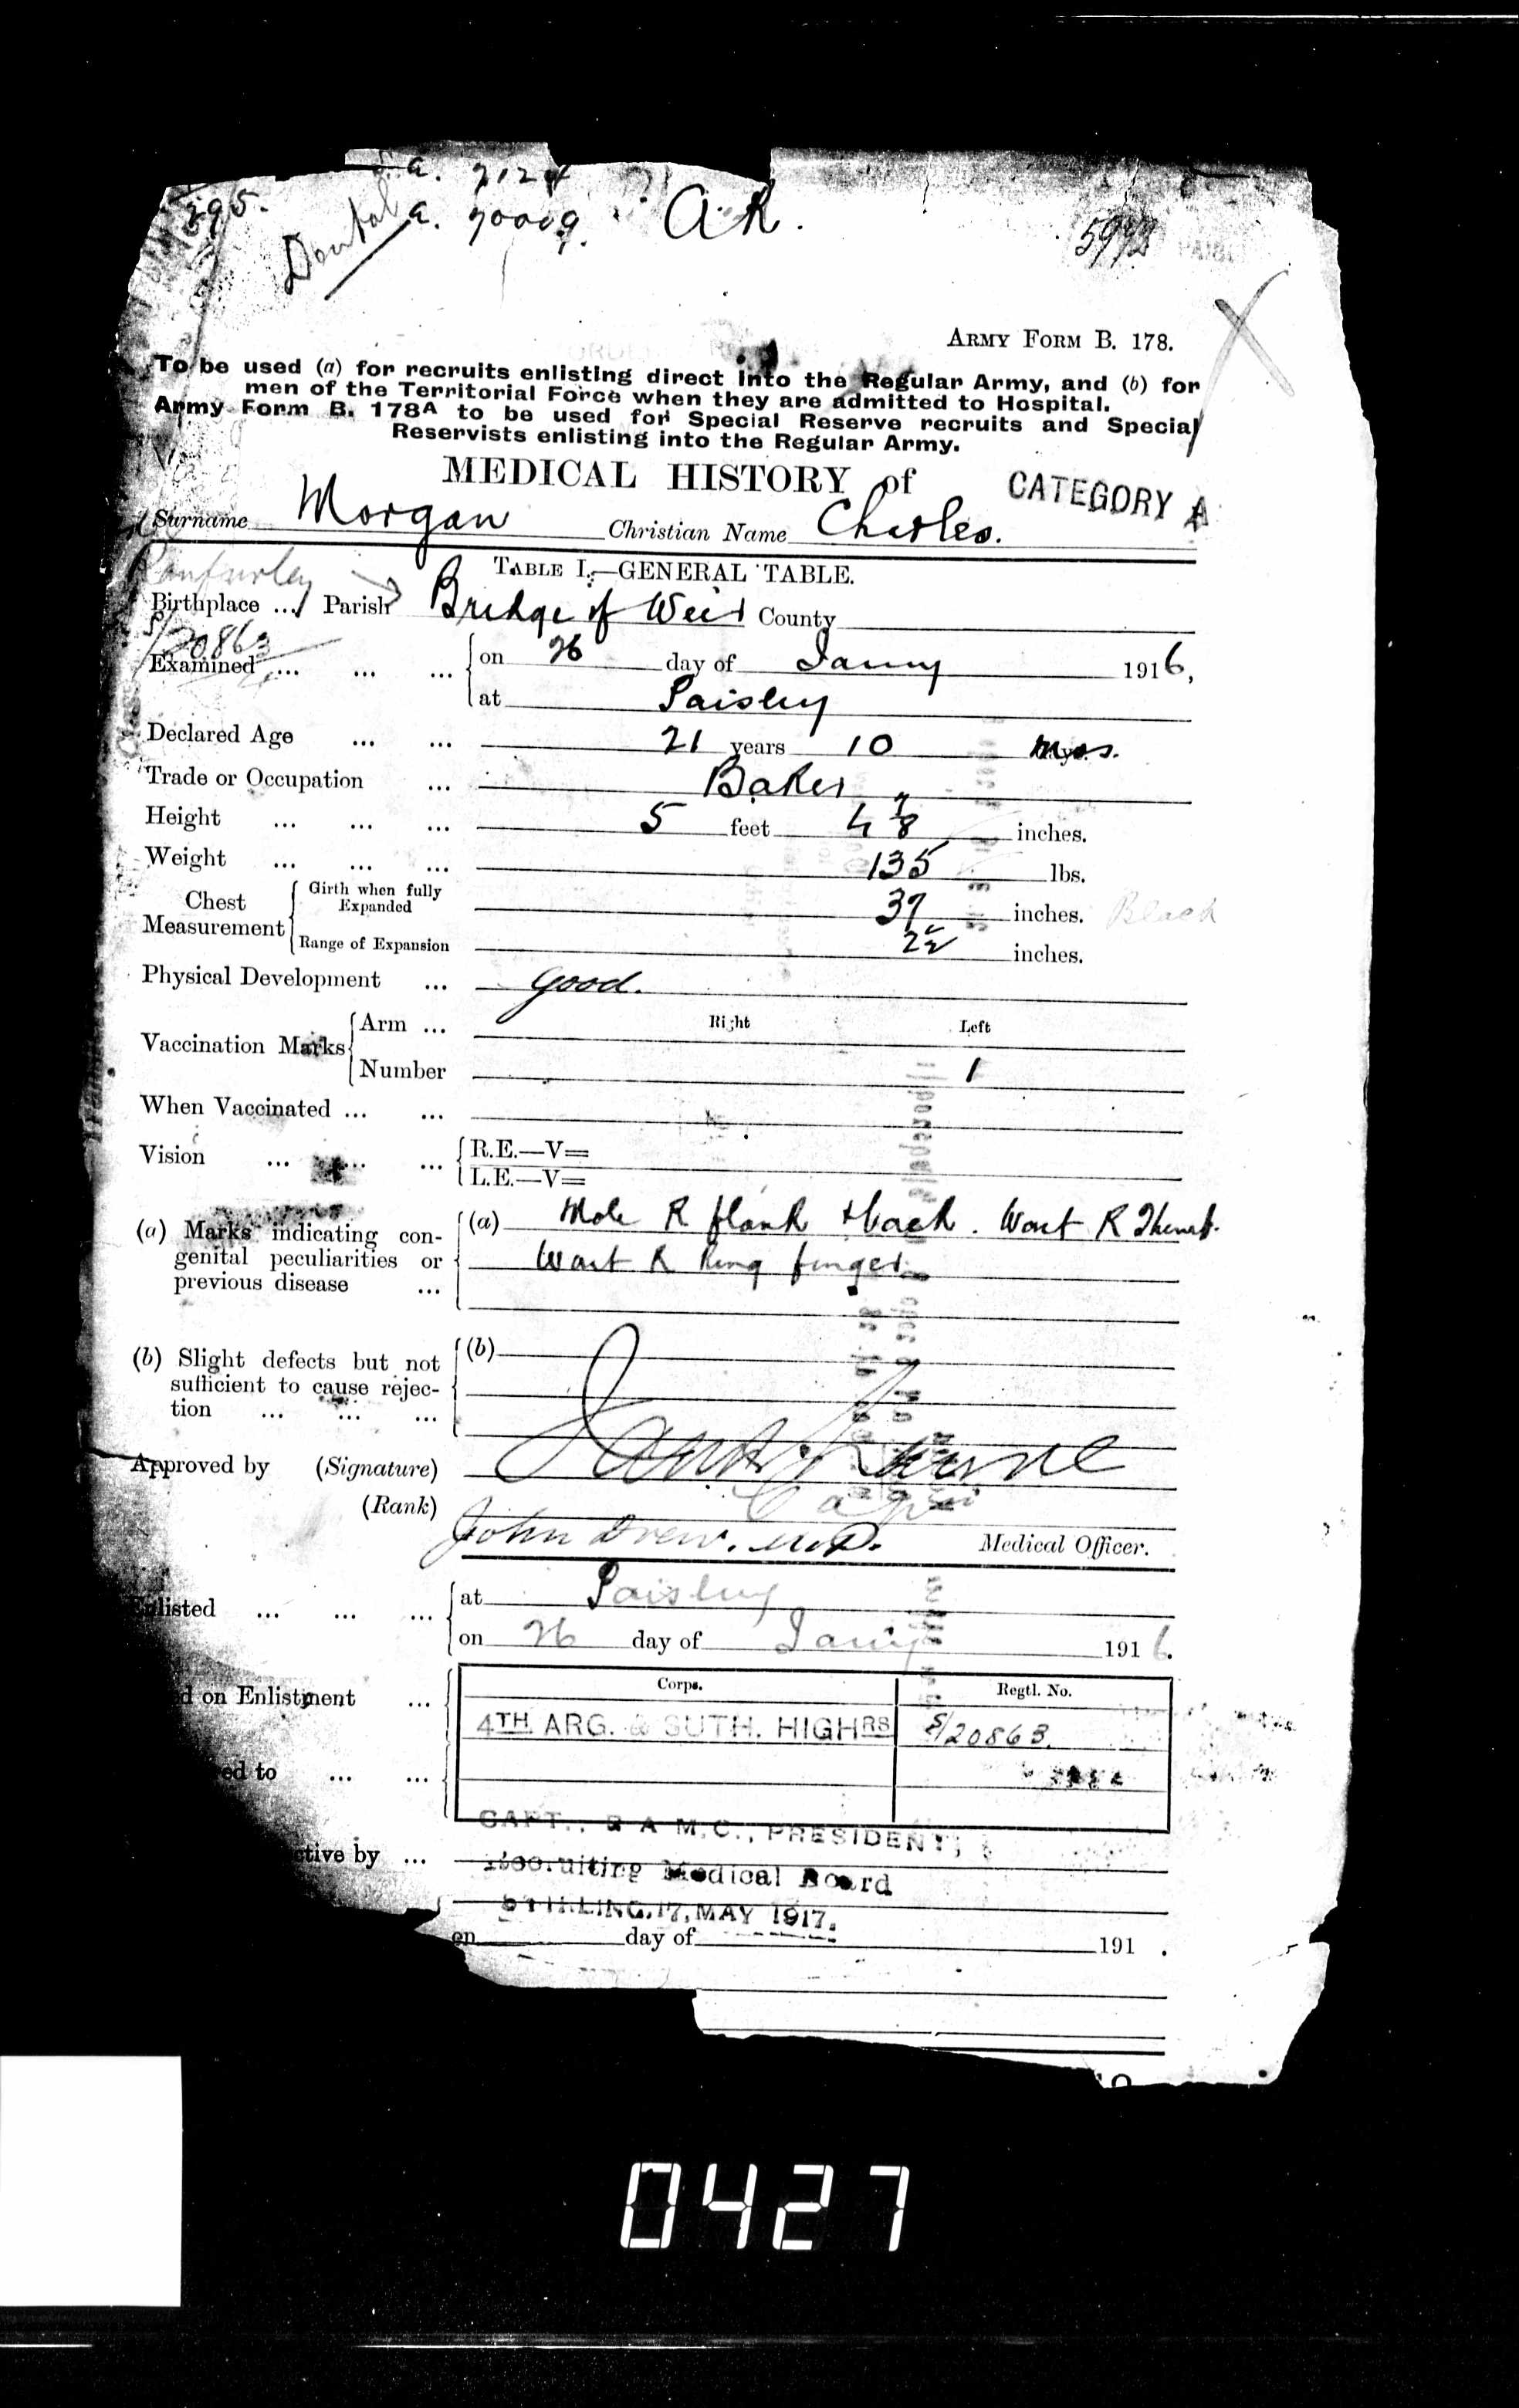 295.
Dental a. 7000g. A.R.
5972
ARMY FORM B. 178.
To be used (a) for recruits enlisting direct into the Regular Army, and (b) for
men of the Territorial Force when they are admitted to Hospital.
Army Form B. 178A to be used for Special Reserve recruits and Special
Reservists enlisting into the Regular Army.
MEDICAL HISTORY of
CATEGORY A
Surname Morgan Christian Name Charles.
TABLE I.—GENERAL TABLE.
Birthplace ... Parish Bridge of Weir County
S/20863
Examined ... ... ... on 26 day of Janny 1916,
at Paisley
Declared Age ... ... 21 years 10 mos.
Trade or Occupation ... Baker
Height ... ... ... 5 feet 4 7/8 inches.
Weight ... ... ... 135 lbs.
Chest Measurement Girth when fully Expanded 37 inches. Black
Range of Expansion 2½ inches.
Physical Development ... Good.
Vaccination Marks Arm ... Right Left
Number 1
When Vaccinated ... ...
Vision ... ... ... R.E.—V=
L.E.—V=
(a) Marks indicating con-
genital peculiarities or
previous disease ...
(a) Mole R flank & back. Wart R Thumb.
Wart R Ring finger
(b) Slight defects but not
sufficient to cause rejec-
tion ... ... ...
(b)
Approved by (Signature)
(Rank) Capt
John Drew. M.D. Medical Officer.
Enlisted ... ... ... at Paisley
on 26 day of Janny 1916.
on Enlistment ...
Corps. Regtl. No.
4TH ARG. & SUTH. HIGHRS S/20863.
ed to ... ...
CAPT., R.A.M.C., PRESIDENT,
ctive by ... Recruiting Medical Board
STIRLING. 17, MAY 1917.
on day of 191 .
0427